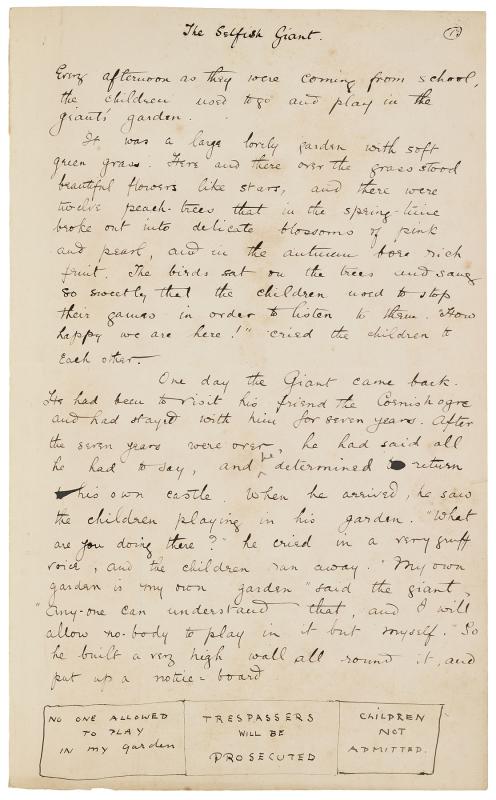 The Selfish Giant.
Every afternoon as they were coming from school,
the children used to go and play in the
giant's garden.
It was a large lovely garden with soft
green grass. Here and there over the grass stood
beautiful flowers like stars, and there were
twelve peach-trees that in the spring-time
broke out into delicate blossoms of pink
and pearl, and in the autumn bore rich
fruit. The birds sat on the trees and sang
so sweetly that the children used to stop
their games in order to listen to them. "How
happy we are here!" cried the children to
each other.
One day the Giant came back.
He had been to visit his friend the Cornish ogre
and had stayed with him for seven years. After
the seven years were over, he had said all
he had to say, and he determined to return
to his own castle. When he arrived, he saw
the children playing in his garden. "What
are you doing there?" he cried in a very gruff
voice, and the children ran away. "My own
garden is my own garden" said the giant,
"any-one can understand that, and I will
allow no-body to play in it but myself." So
he built a very high wall all round it, and
put up a notice-board
NO ONE ALLOWED
TO PLAY
IN my garden
TRESPASSERS
WILL BE
PROSECUTED
CHILDREN
NOT
ADMITTED.